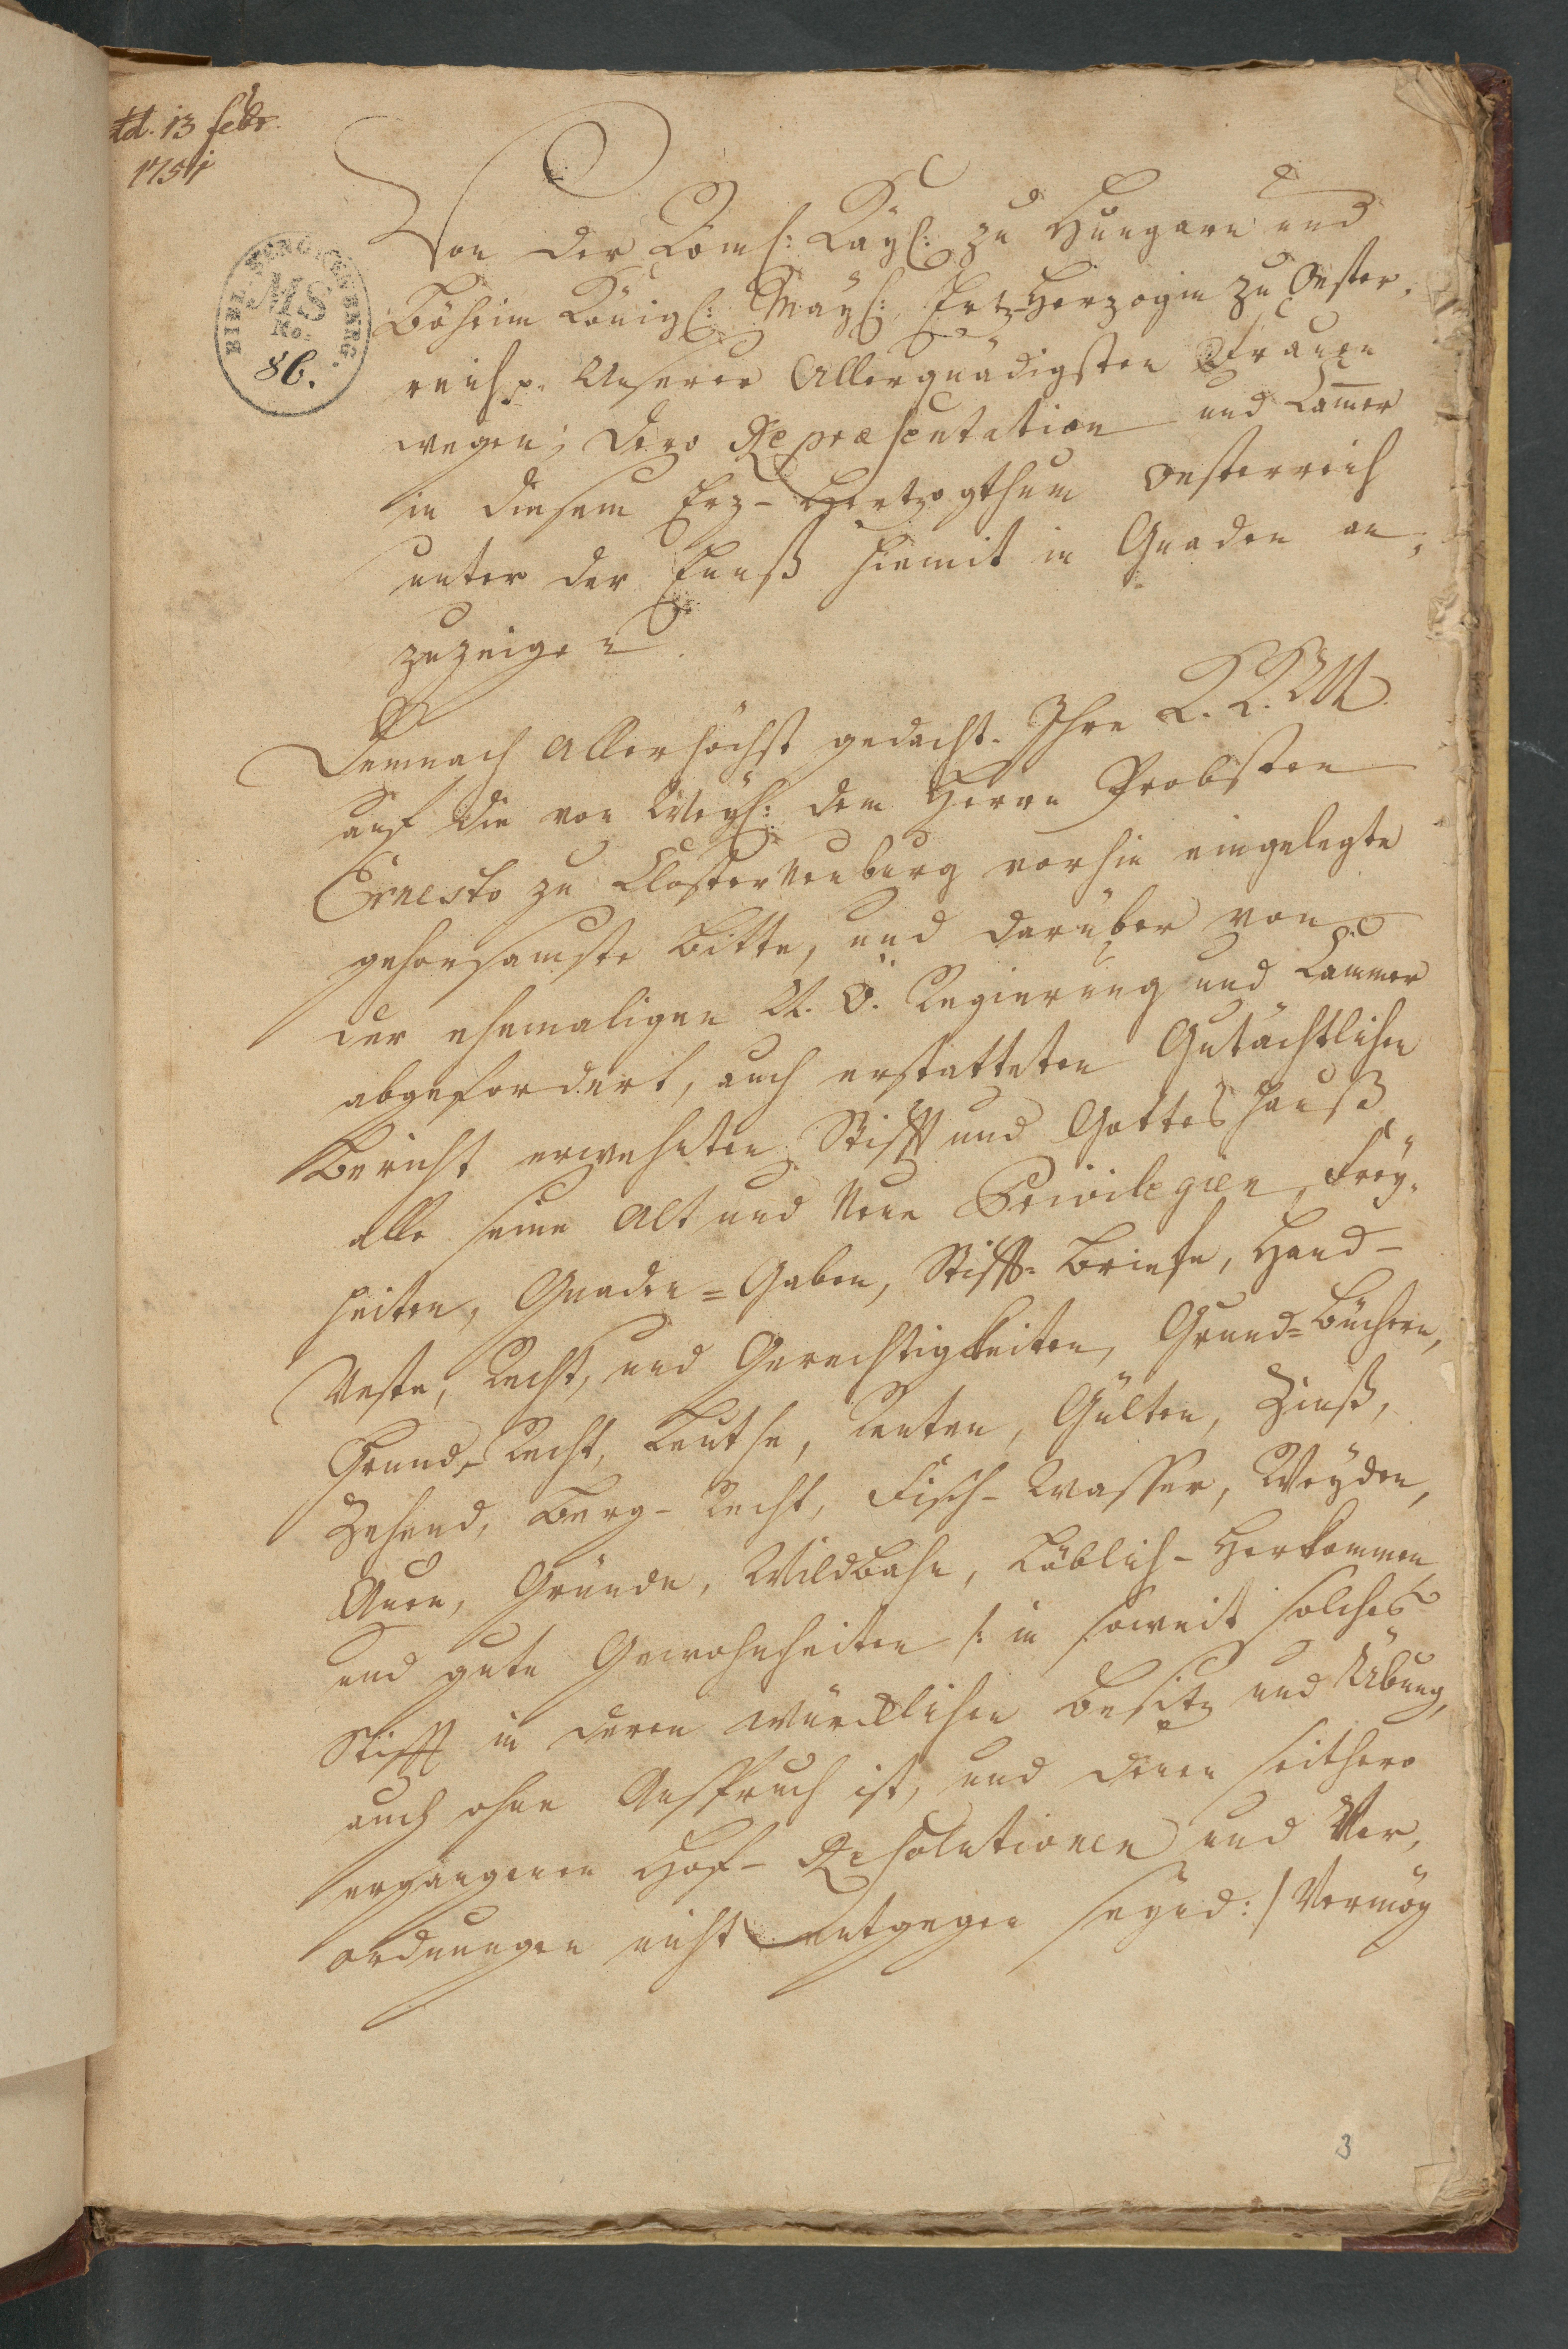 dd. 13 febr.
1751
BIBL. MS No. 86.
Von der Röm: Kay: zu Hungarn und
Böheim Königl: May: Ertz-Herzogin zu Oester,
reich p. Unserer Allergnädigsten Frauen
wegen; dero Repraesentation und Cam̄er
in diesem Erz-Hertzogthum Oesterreich
unter der Ennß hiemit in Gnaden an,
zuzeigen.
Demnach Allerhöchst gedacht. Ihre K. K. M.
auf die von Weyl: dem Herrn Probsten
Ernesto zu Closterneuburg vorhin eingelegte
gehorsamste Bitte, und darüber von
der ehemaligen N. Ö. Regierung und Cammer
abgefordert, auch erstatteten Gutächtlichen
Bericht erwehnten Stifft und Gotteshauß
alle seine Alt und Neue Privilegien, Frey,
heiten, Gnaden=Gaben, Stifft=Briefe, Hand-
Veste, Recht, und Gerechtigkeiten, Grund=Büchern,
Grund-Recht, Leuthe, Renten, Gülten, Zinß,
Zehend, Berg-Recht, Fisch-Wasser, Weyden,
Auen, Gründe, Wildbahn, Löblich-Herkommen
und gute Gewohnheiten /: in soweit solches
Stifft in deren würcklichen Besitz und Übung,
auch ohne Anspruch ist, und denen seithero
ergangenen Hof-Resolutionen und Ver,
ordnungen nicht entgegen seynd :/ Vermög
3